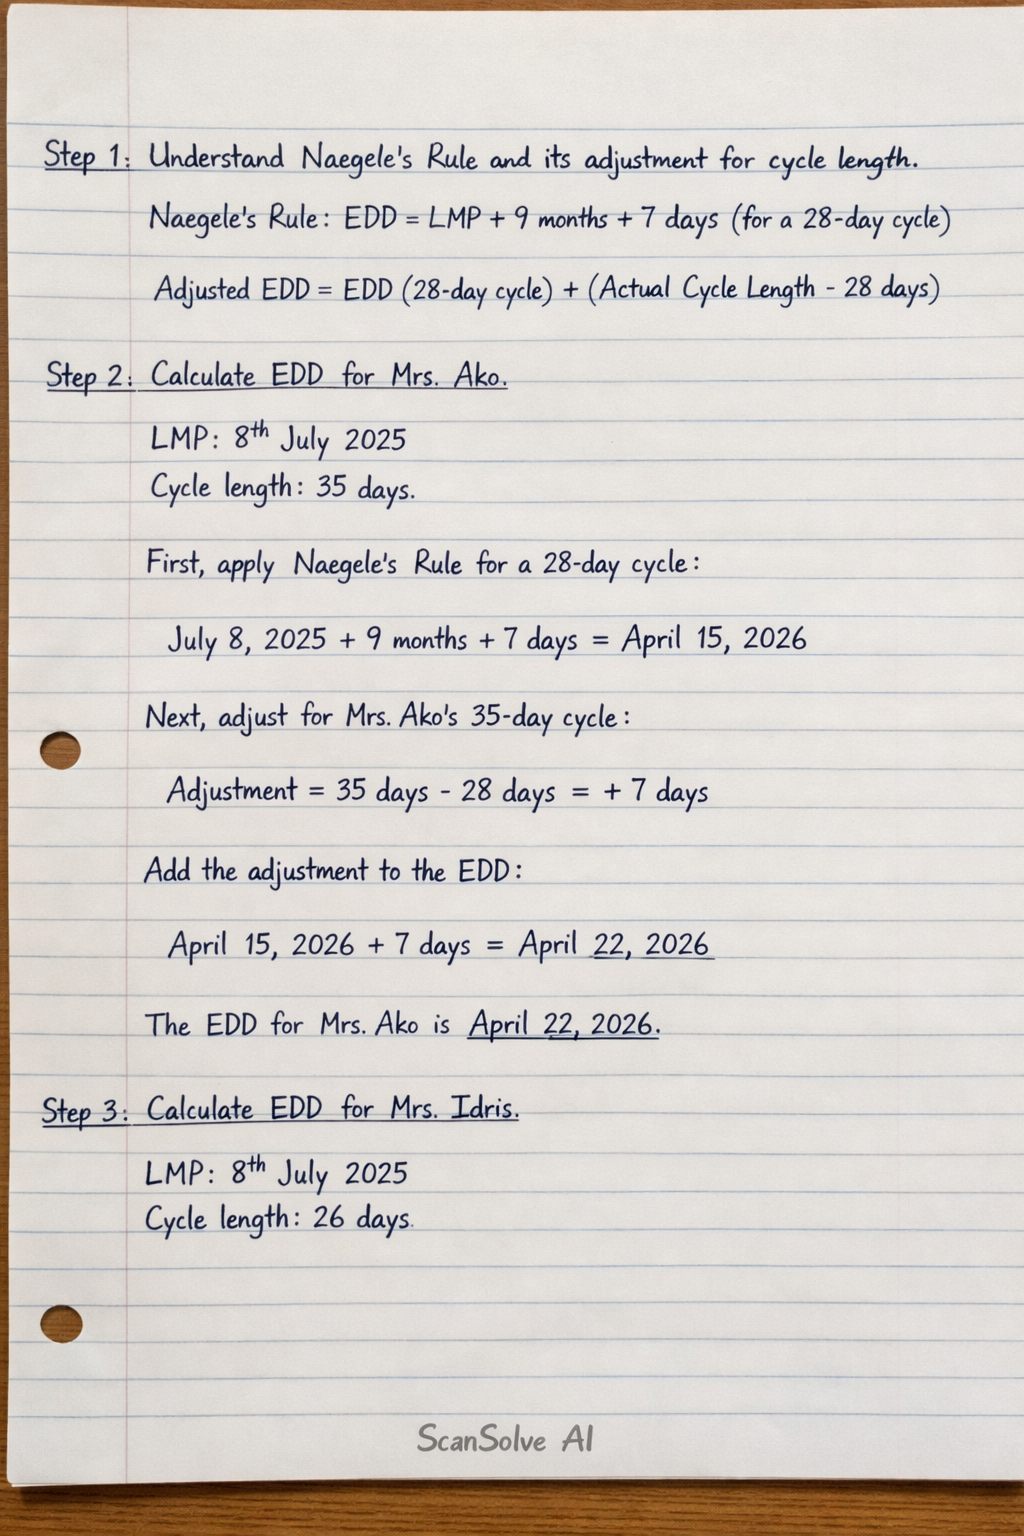 Step 1: Understand Naegele's Rule and its adjustment for cycle length.
Naegele's Rule: EDD = LMP + 9 months + 7 days (for a 28-day cycle)
Adjusted EDD = EDD (28-day cycle) + (Actual Cycle Length - 28 days)
Step 2: Calculate EDD for Mrs. Ako.
LMP: 8th July 2025
Cycle length: 35 days.
First, apply Naegele's Rule for a 28-day cycle:
July 8, 2025 + 9 months + 7 days = April 15, 2026
Next, adjust for Mrs. Ako's 35-day cycle:
Adjustment = 35 days - 28 days = + 7 days
Add the adjustment to the EDD:
April 15, 2026 + 7 days = April 22, 2026
The EDD for Mrs. Ako is April 22, 2026.
Step 3: Calculate EDD for Mrs. Idris.
LMP: 8th July 2025
Cycle length: 26 days.
ScanSolve AI